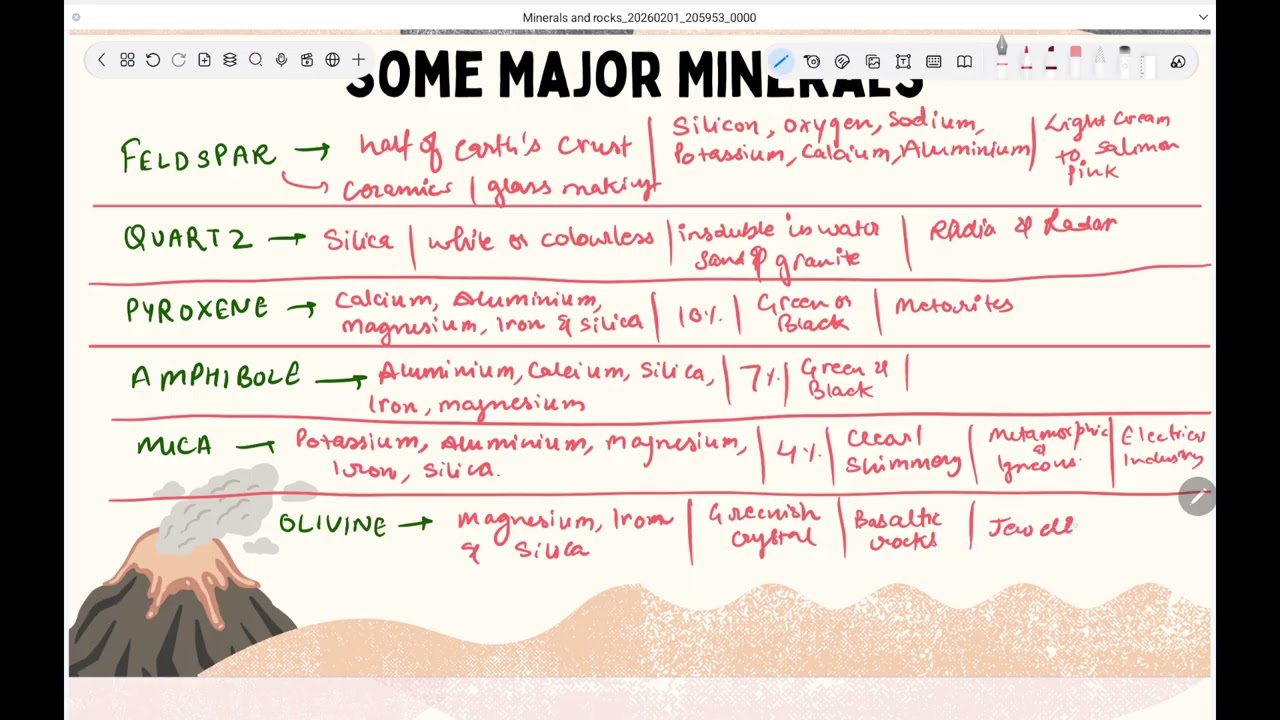 Minerals and rocks_20260201_205953_0000
SOME MAJOR MINERALS
FELDSPAR → half of earth's crust | Silicon, oxygen, Sodium, Potassium, Calcium, Aluminium | Light cream to salmon pink
Ceramics | glass making
QUARTZ → Silica | white or colourless | insoluble in water Sand & granite | Radio & Radar
PYROXENE → Calcium, Aluminium, Magnesium, Iron & Silica | 10% | Green or Black | Metorites
AMPHIBOLE → Aluminium, Calcium, Silica, Iron, magnesium | 7% | Green & Black |
MICA → Potassium, Aluminium, Magnesium, Iron, Silica. | 4% | Shimmery | Metamorphic & Igneous. | Electrical Industry
OLIVINE → Magnesium, Iron & Silica | Greenish crystal | Basaltic rocks | Jewell